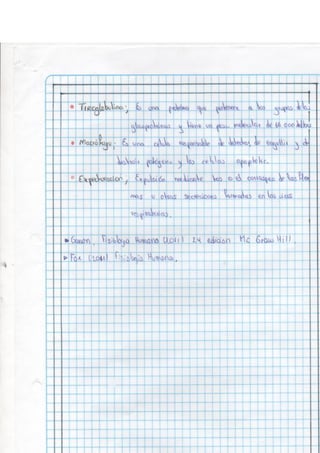 Tiroglobulina; Es una proteína que pertenece a los grupos de las
glucoproteinas y tiene un peso molecular de 66 000 daltons
Macrófago; Es una célula responsable de detectar, de engullir y de
destruir patógenos y las células apoptoticas.
Expectoración; Expulsión mediante tos o el carraspeo de las flemas
mas u otras secreciones formadas en las vías
respiratorias.
Ganon, Fisiología Humana (2013) 24 edición Mc Graw Hill.
Fox (2011) Fisiología Humana.